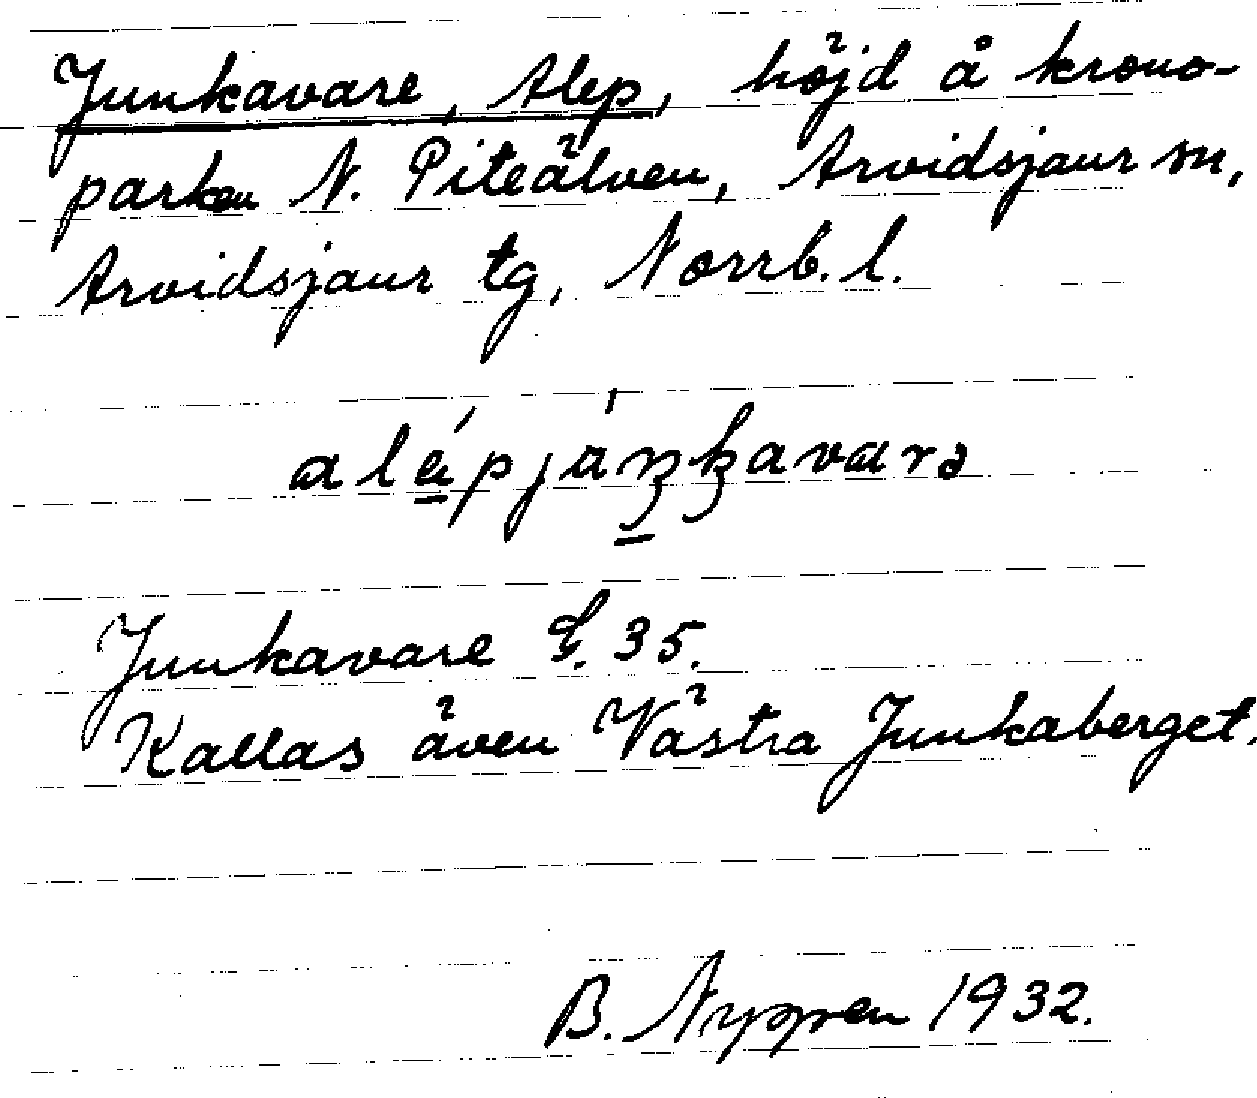 Junkavare, Alep, höjd å krono-
parken N. Piteälven, Arvidsjaur sn,
Arvidsjaur tg, Norrb. l.
Junkavare G. 35.
Kallas även Västra Junkaberget.
B. Nyppen 1932.